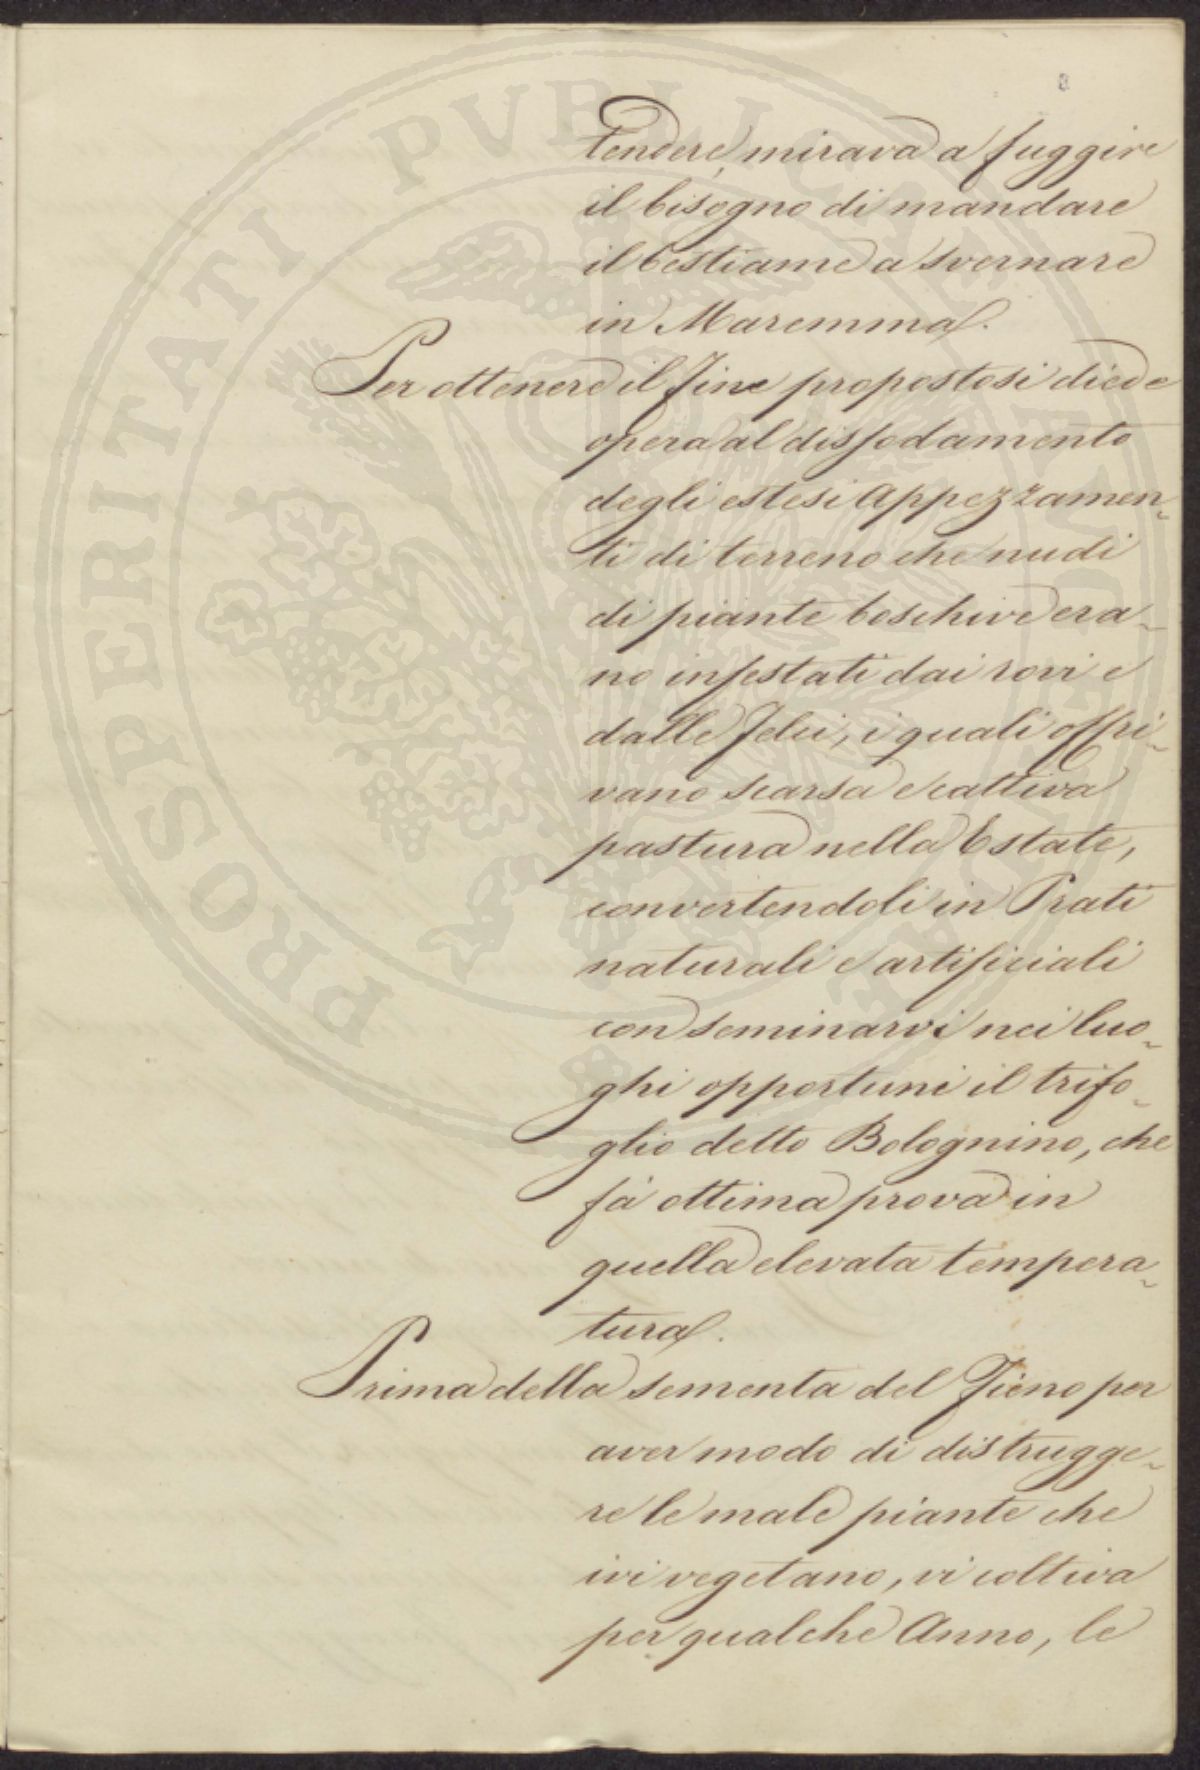 tendere, mirava a fuggire
il bisogno di mandare
il bestiame a svernare
in Maremma.
Per ottenere il fine propostosi diede
opera al dissodamento
degli estesi Appezzamen-
ti di terreno che nudi
di piante boschive era-
no infestati dai rovi e
dalle felci, i quali offri-
vano scarsa e cattiva
pastura nella Estate,
convertendoli in Prati
naturali e artificiali
con seminarvi nei luo-
ghi opportuni il trifo-
glio detto Bolognino, che
fà ottima prova in
quella elevata tempera-
tura.
Prima della sementa del Fieno per
aver modo di distrugge-
re le male piante che
ivi vegetano, vi coltiva
per qualche Anno, le
PROSPERITATI PVBLICAE AVGENDAE